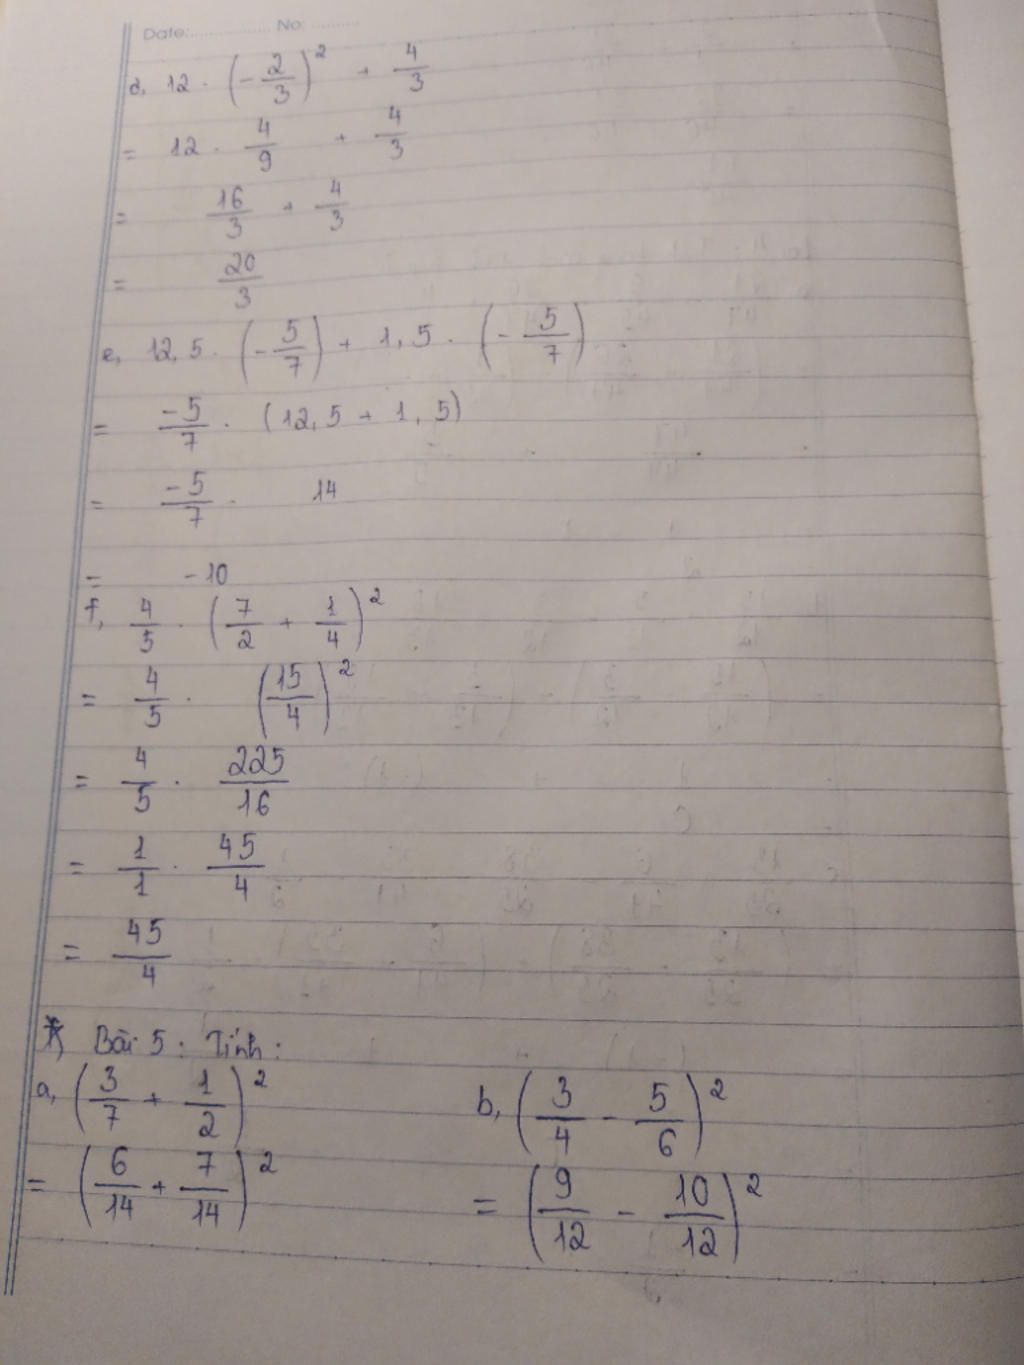 Date:.................. No: ...........
d, 12 . (-2/3)² + 4/3
= 12 . 4/9 + 4/3
= 16/3 + 4/3
= 20/3
e, 12,5 . (-5/7) + 1,5 . (-5/7)
= -5/7 . (12,5 + 1,5)
= -5/7 . 14
= -10
f, 4/5 . (7/2 + 1/4)²
= 4/5 . (15/4)²
= 4/5 . 225/16
= 1/1 . 45/4
= 45/4
*) Bài 5: Tính:
a, (3/7 + 1/2)² b, (3/4 - 5/6)²
= (6/14 + 7/14)² = (9/12 - 10/12)²